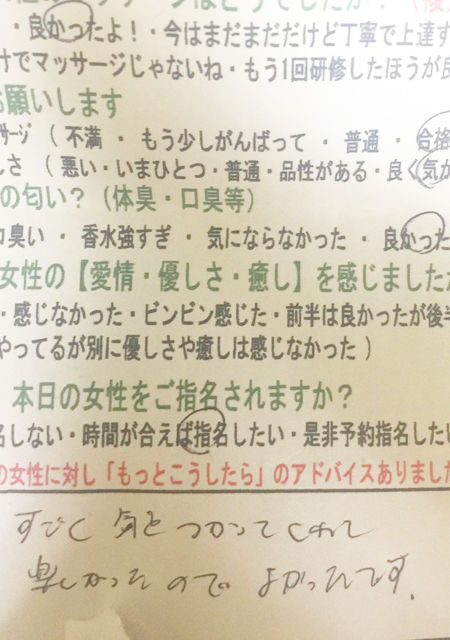 ・良かったよ！・今はまだまだだけど丁寧で上達す
けでマッサージじゃないね・もう1回研修したほうが良
お願いします
サージ （ 不満 ・ もう少しがんばって ・ 普通 ・ 合格
しさ （ 悪い・いまひとつ・普通・品性がある・良く気が
の匂い？（体臭・口臭等）
口臭い ・ 香水強すぎ ・ 気にならなかった ・ 良かった
女性の【愛情・優しさ・癒し】を感じましたか
・感じなかった・ビンビン感じた・前半は良かったが後半
やってるが別に優しさや癒しは感じなかった ）
本日の女性をご指名されますか？
名しない・時間が合えば指名したい・是非予約指名したい
の女性に対し「もっとこうしたら」のアドバイスありました
すごく 気を つかってくれて
楽しかったので よかったです.